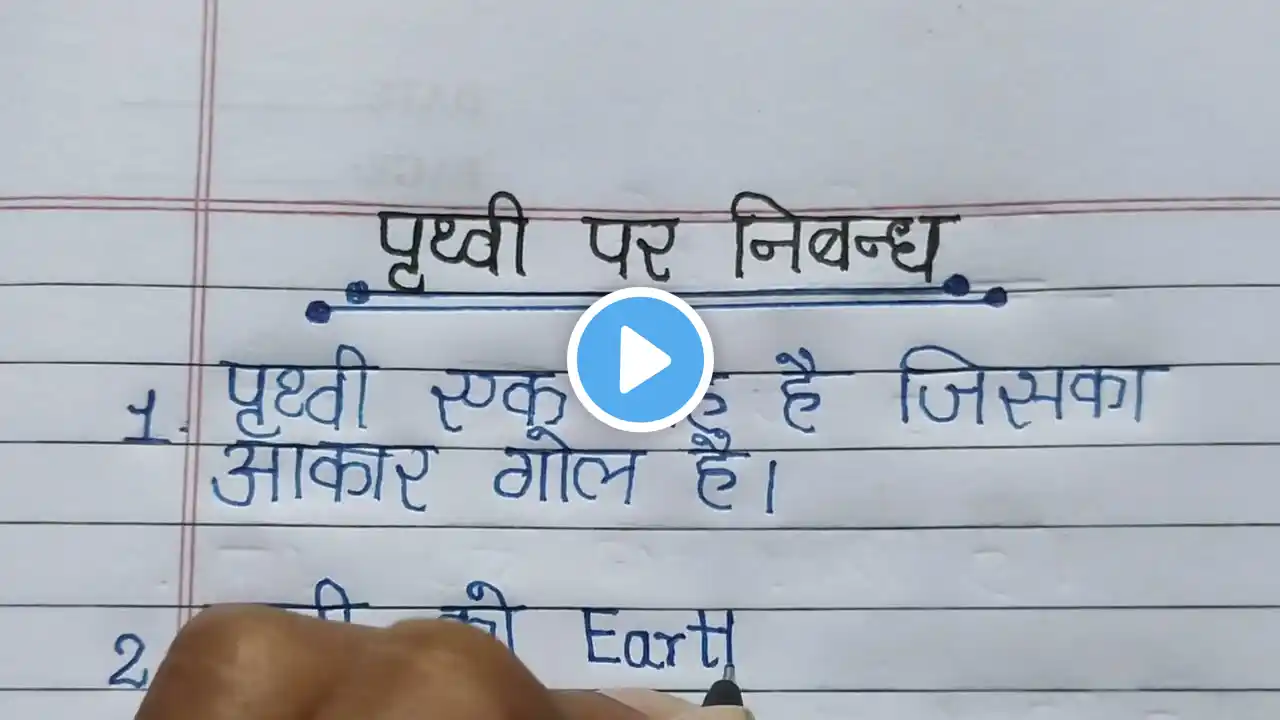 पृथ्वी पर निबन्ध
1. पृथ्वी एक है जिसका
आकार गोल है।
2. को Eart